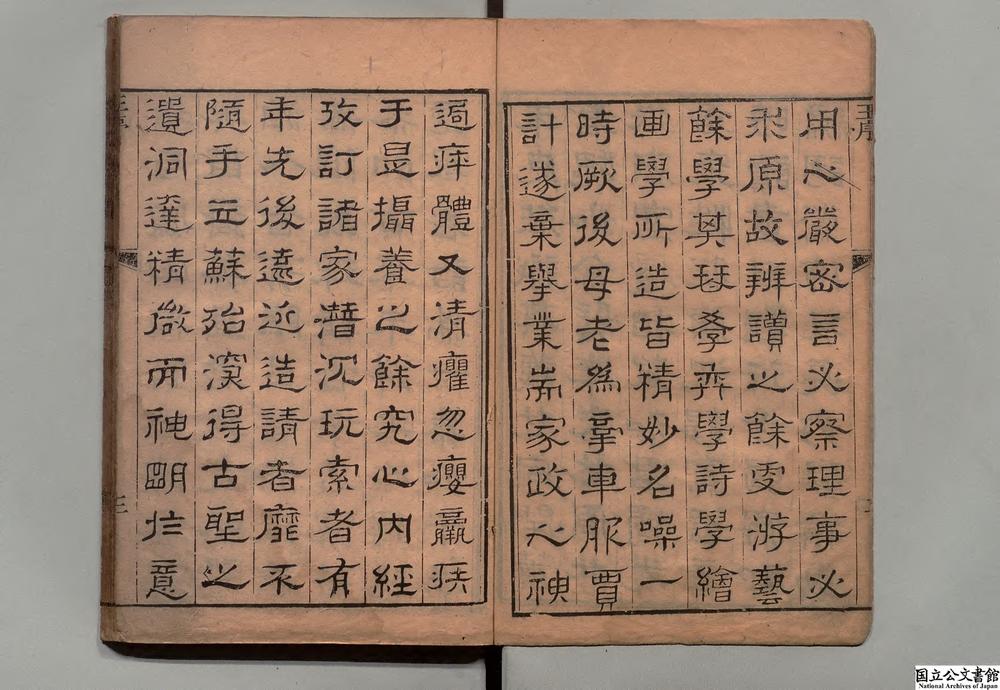 王序
用心嚴密言必察理事必
求原故辨讀之餘爰游藝
餘學其琴學弈學詩學繪
画學所造皆精妙名噪一
時厥後母老為牽車服賈
計遂棄舉業耑家政心神
過瘁體又清癯忽癭羸疾
于是攝養之餘究心內經
攷訂諸家潛沉玩索者有
年先後遠近造請者靡不
隨手立蘇殆深得古聖之
遺洞達精微而神明於意
王序
三
国立公文書館
National Archives of Japan